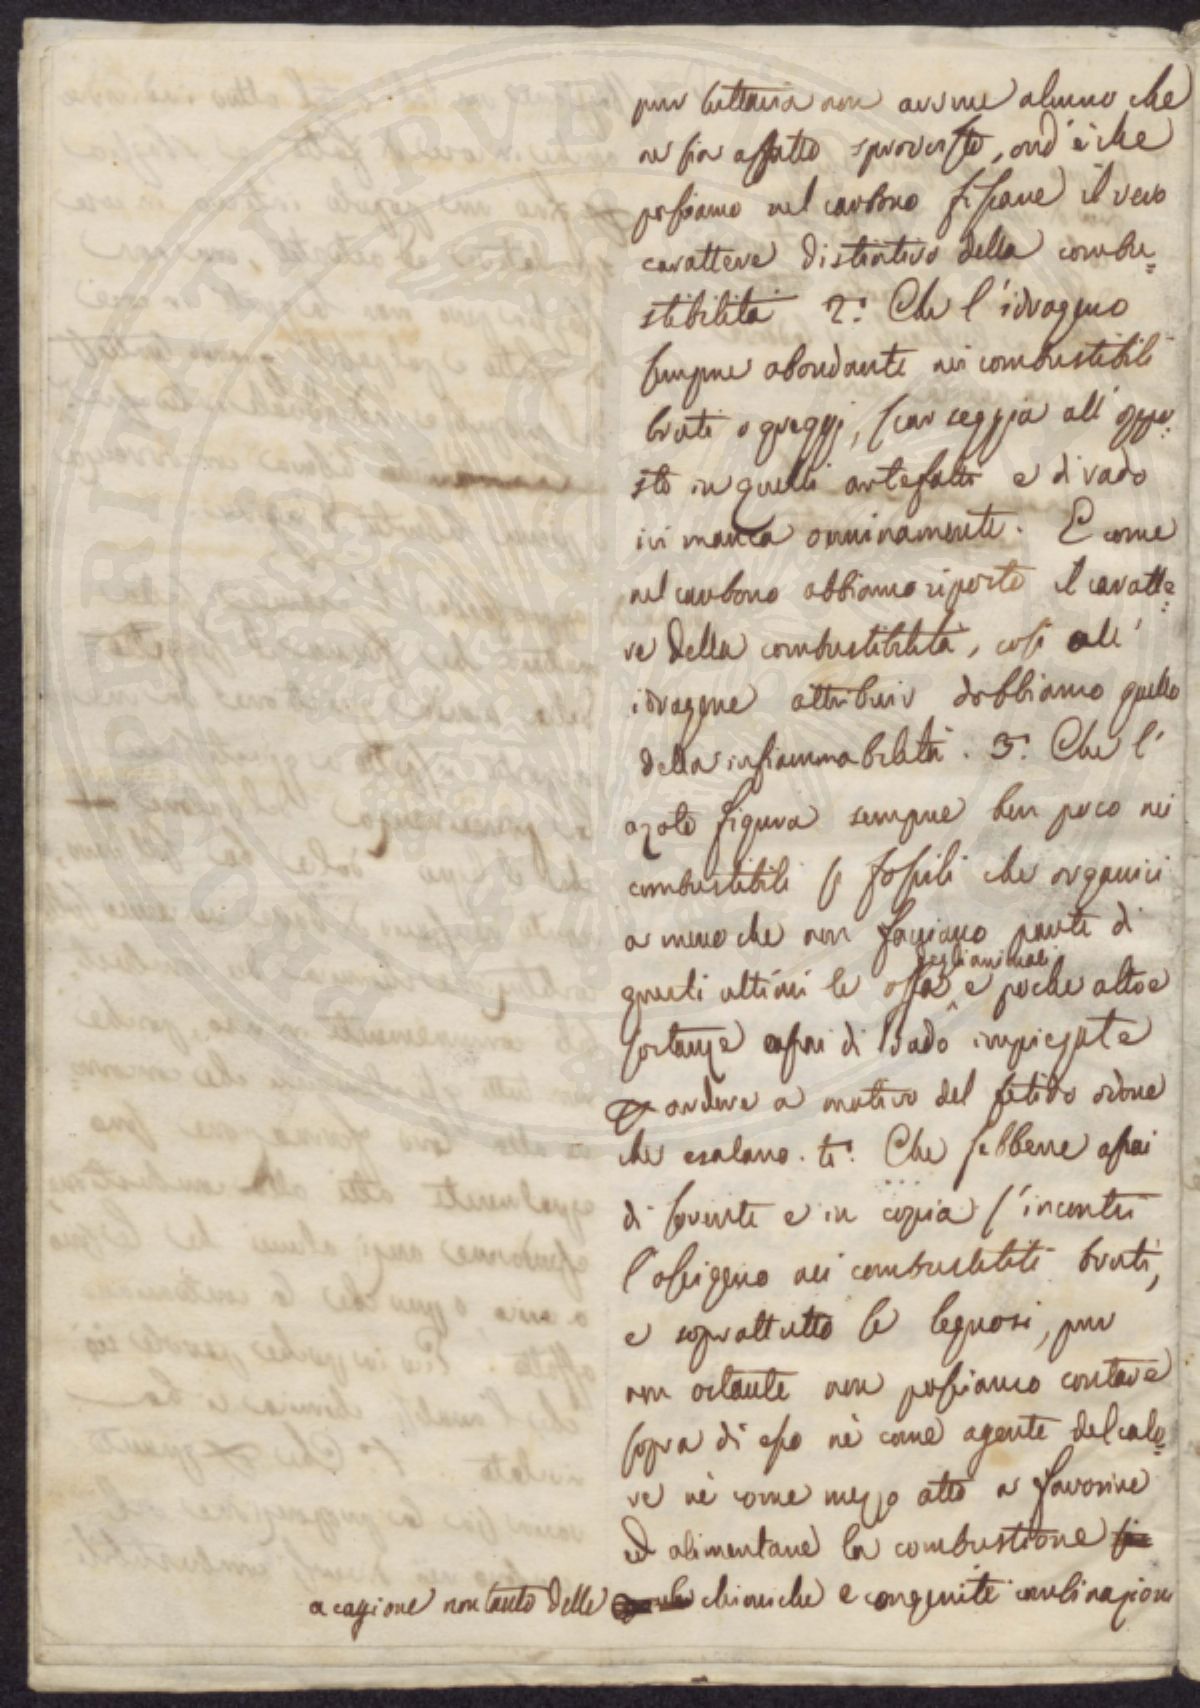 pur tuttavia non avvene alcuno che
ne sia affatto sprovvisto, ond'è che
possiamo nel carbono fissare il vero
carattere distintivo della combu=
stibilità 2.° Che l'idrogeno
sempre abondante nei combustibili
bruti o greggj, scarseggia all'oppo=
sto in quelli artefatti e di rado
ivi manca onninamente. E come
nel carbono abbiamo riposto il caratte=
re della combustibilità, così all'
idrogene attribuir dobbiamo quello
della infiammabilità. 3.° Che l'
azoto figura sempre ben poco nei
combustibili sì fossili che organici
a meno che non facciano parte di
questi ultimi le ossa degli animali e poche altre
sostanze assai di rado impiegate
ardere a motivo del fetido odore
che esalano. 4.° Che sebbene assai
di sovente e in copia s'incontri
l'ossigeno nei combustibili bruti,
e soprattutto le legnosi, pur
non ostante non possiamo contare
sopra di esso nè come agente del calo=
re nè come mezzo atto a favorire
ed alimentare la combustione
a cagione non tanto delle chimiche e congenite combinazioni